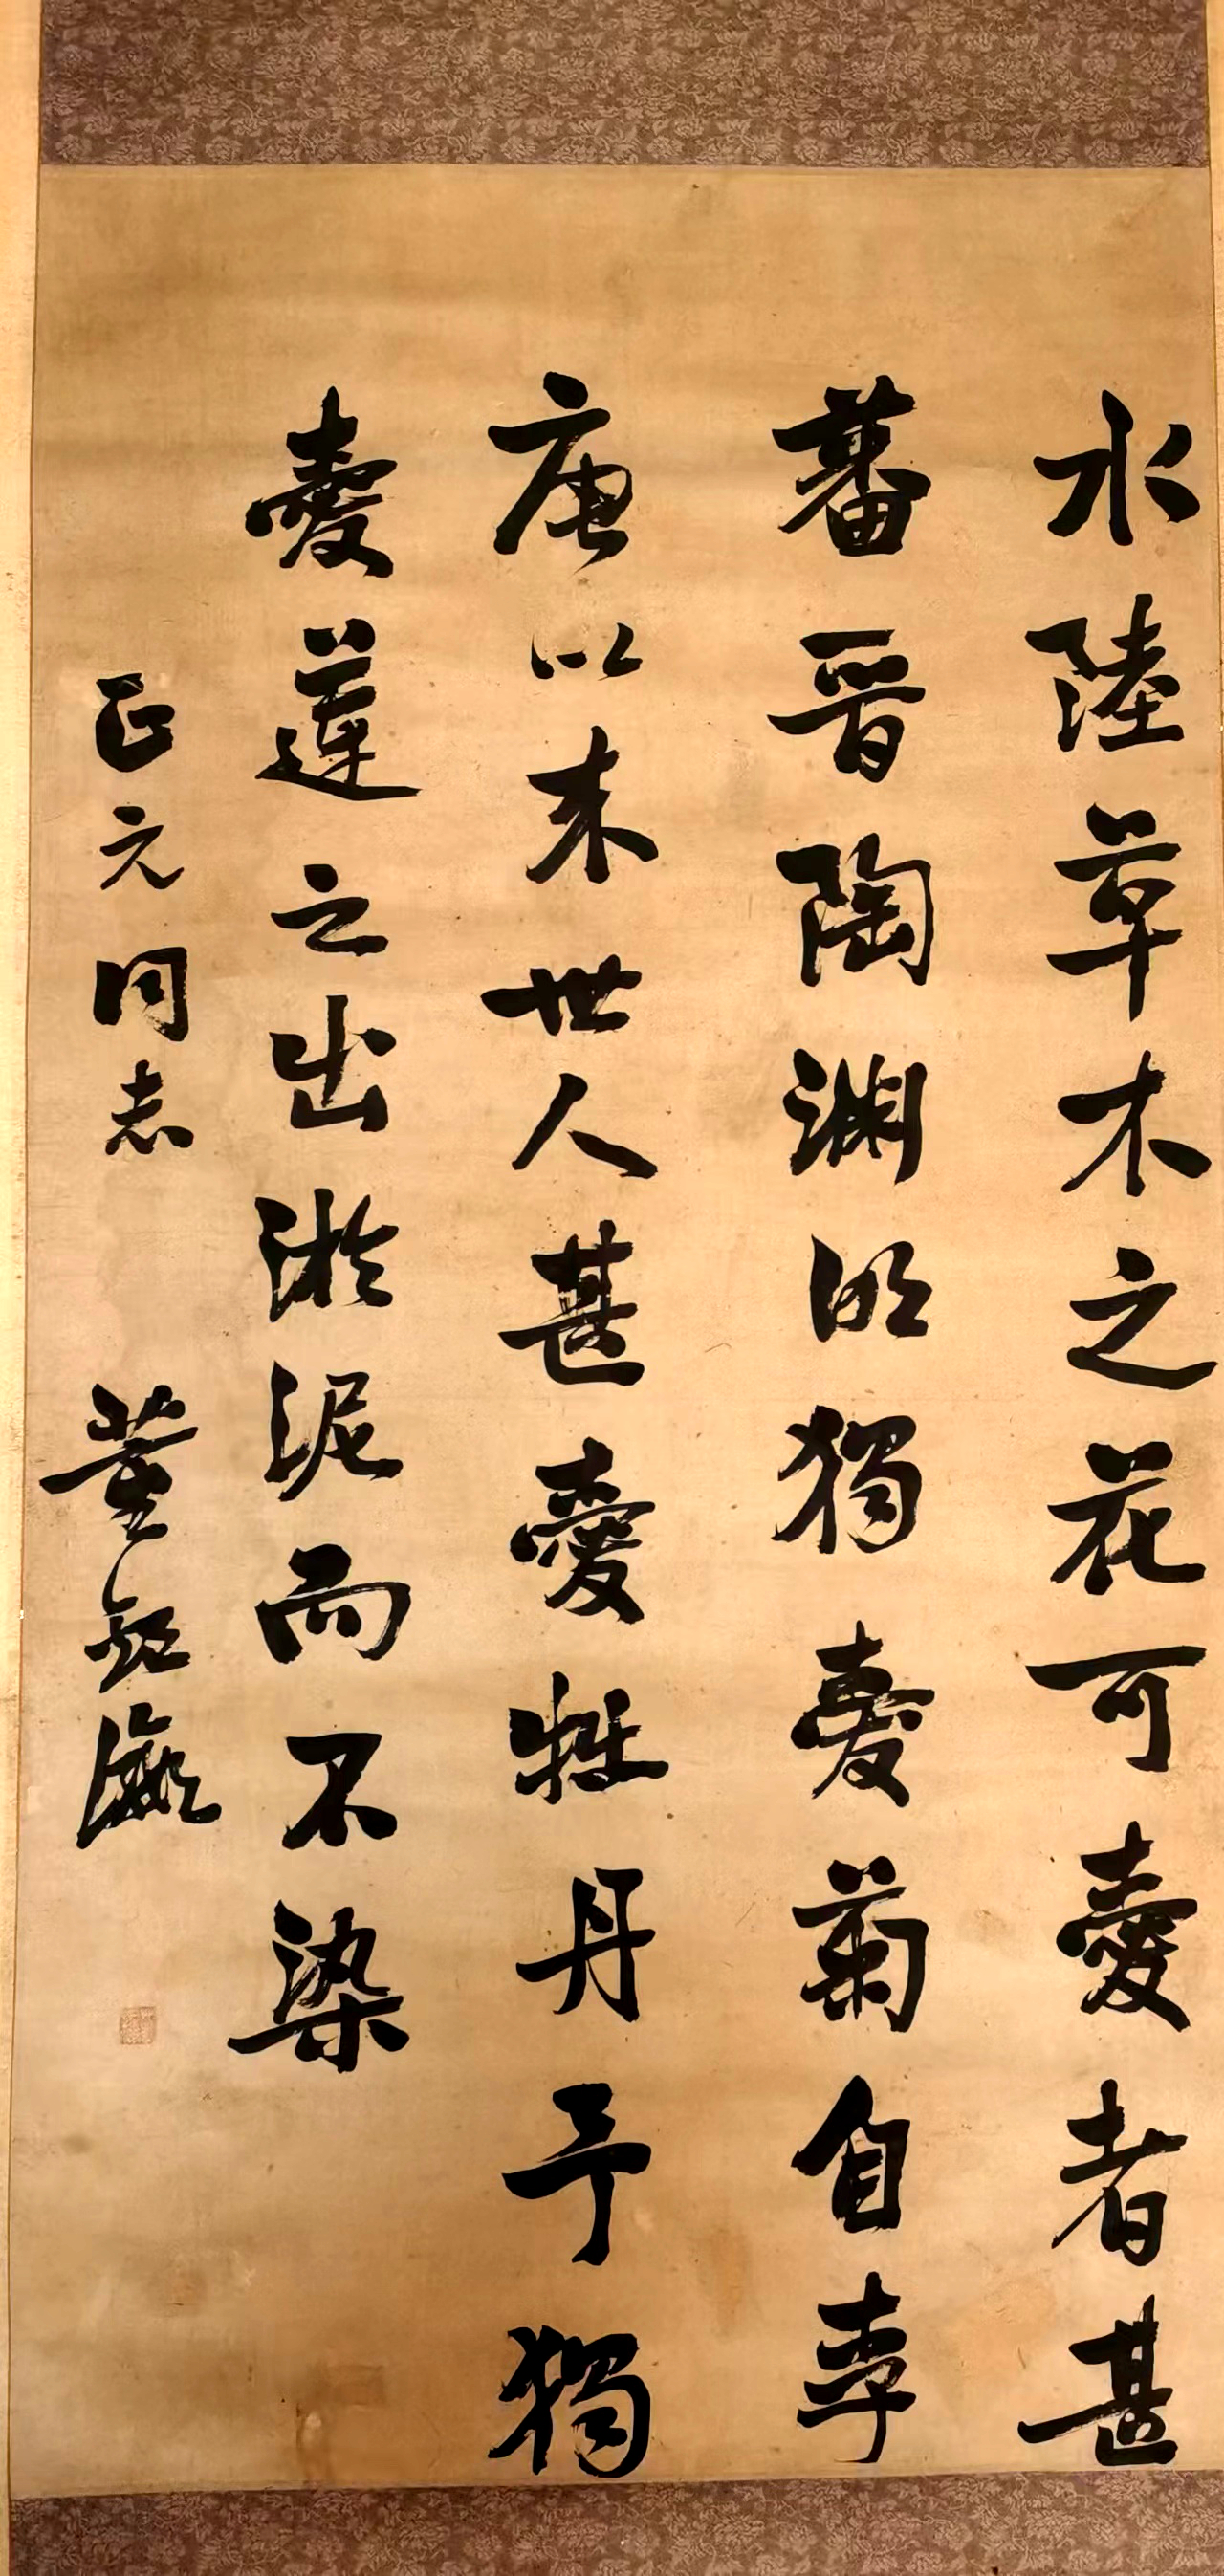 水陸草木之花可愛者甚
蕃晋陶淵明獨愛菊自李
唐以来世人甚愛牡丹予獨
愛蓮之出淤泥而不染
正元同志 董